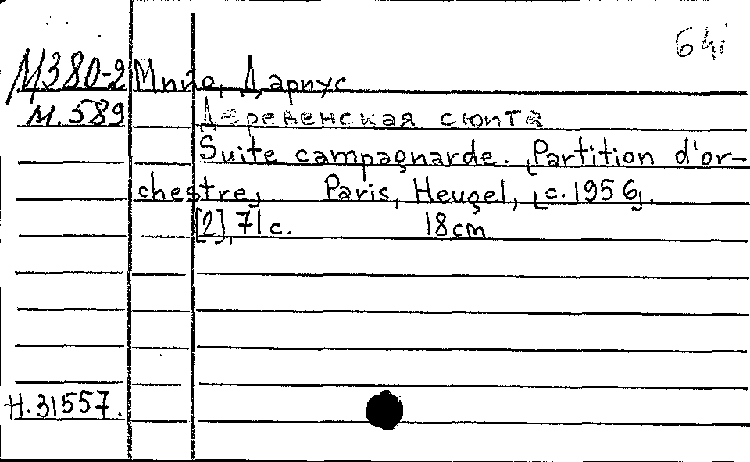 М380-2 Мийо, Дариус
М.589 Деревенская сюита
Suite campagnarde. [Partition d'or-
chestre]. Paris, Heugel, [c. 1956].
[2], 71 с. 18cm
Н.31557.